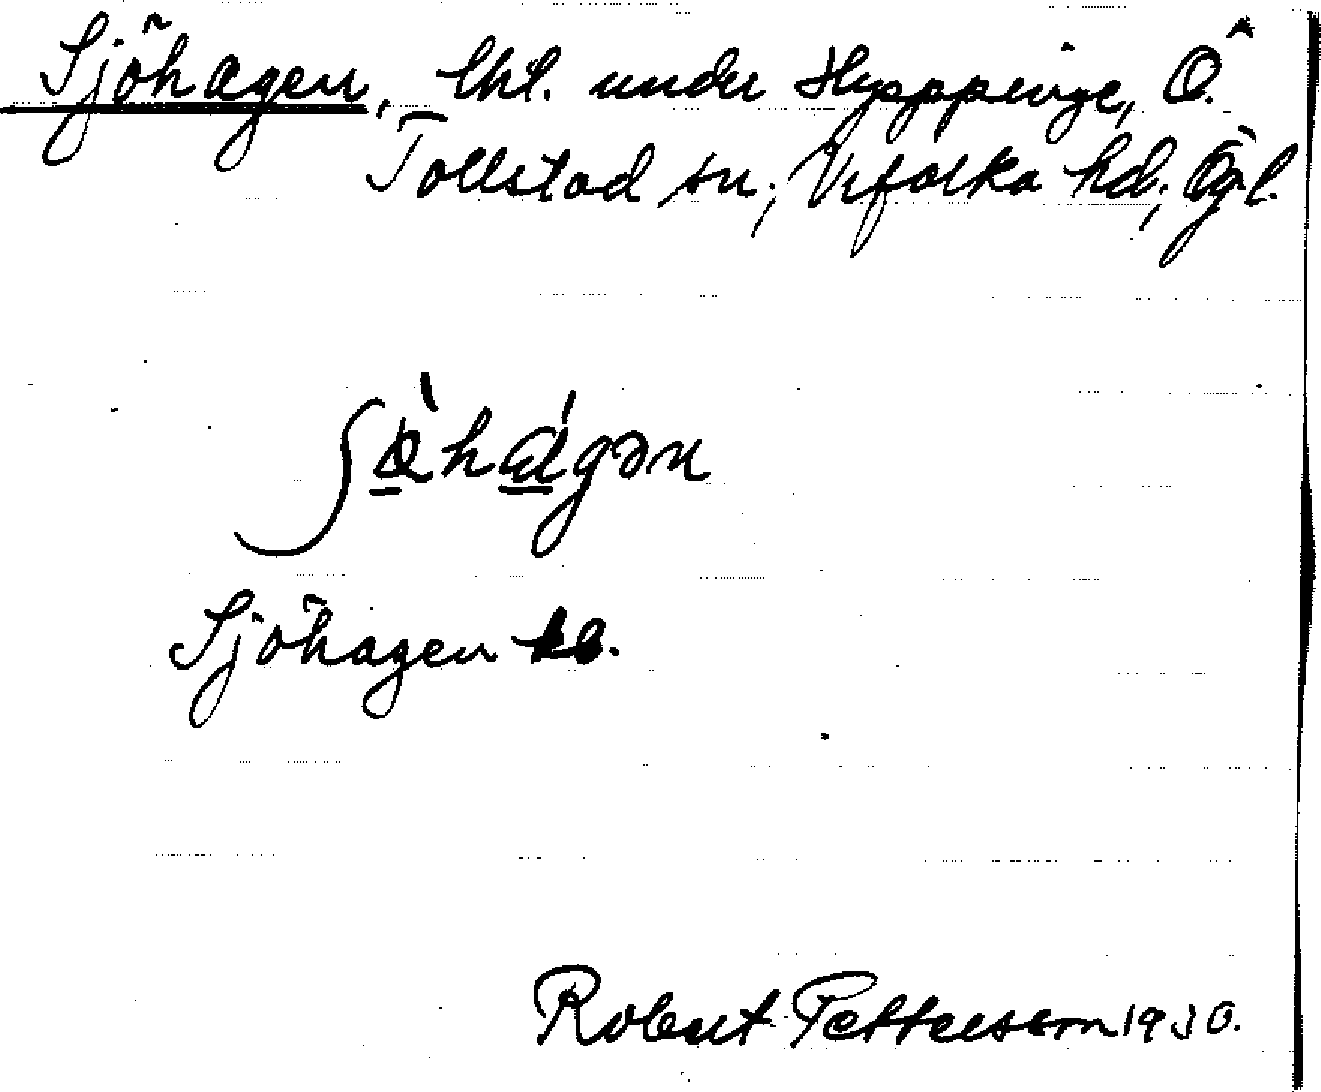 Sjöhagen, lht. under Hyppinge, Ö.
Tollstad sn; Vifolka hd; Ögl.
ʃö̀hágən
Sjöhagen
Robert Pettersson 1930.